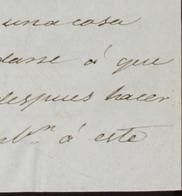 una cosa
darse á que
despues hacer
á este